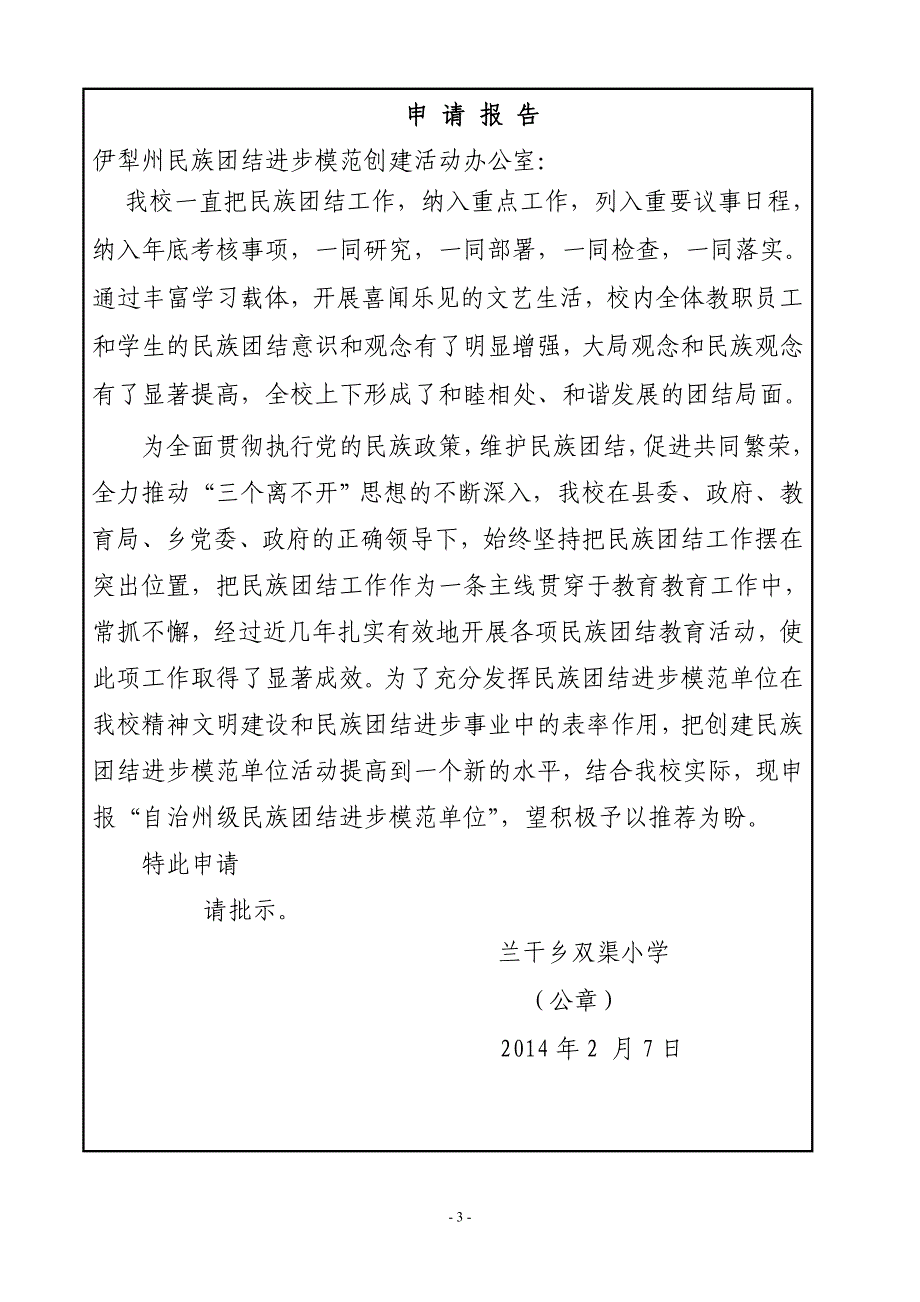 申 请 报 告
伊犁州民族团结进步模范创建活动办公室：
我校一直把民族团结工作，纳入重点工作，列入重要议事日程，
纳入年底考核事项，一同研究，一同部署，一同检查，一同落实。
通过丰富学习载体，开展喜闻乐见的文艺生活，校内全体教职员工
和学生的民族团结意识和观念有了明显增强，大局观念和民族观念
有了显著提高，全校上下形成了和睦相处、和谐发展的团结局面。
为全面贯彻执行党的民族政策，维护民族团结，促进共同繁荣，
全力推动“三个离不开”思想的不断深入，我校在县委、政府、教
育局、乡党委、政府的正确领导下，始终坚持把民族团结工作摆在
突出位置，把民族团结工作作为一条主线贯穿于教育教育工作中，
常抓不懈，经过近几年扎实有效地开展各项民族团结教育活动，使
此项工作取得了显著成效。为了充分发挥民族团结进步模范单位在
我校精神文明建设和民族团结进步事业中的表率作用，把创建民族
团结进步模范单位活动提高到一个新的水平，结合我校实际，现申
报“自治州级民族团结进步模范单位”，望积极予以推荐为盼。
特此申请
请批示。
兰干乡双渠小学
（公章）
2014年2 月7日
- 3 -